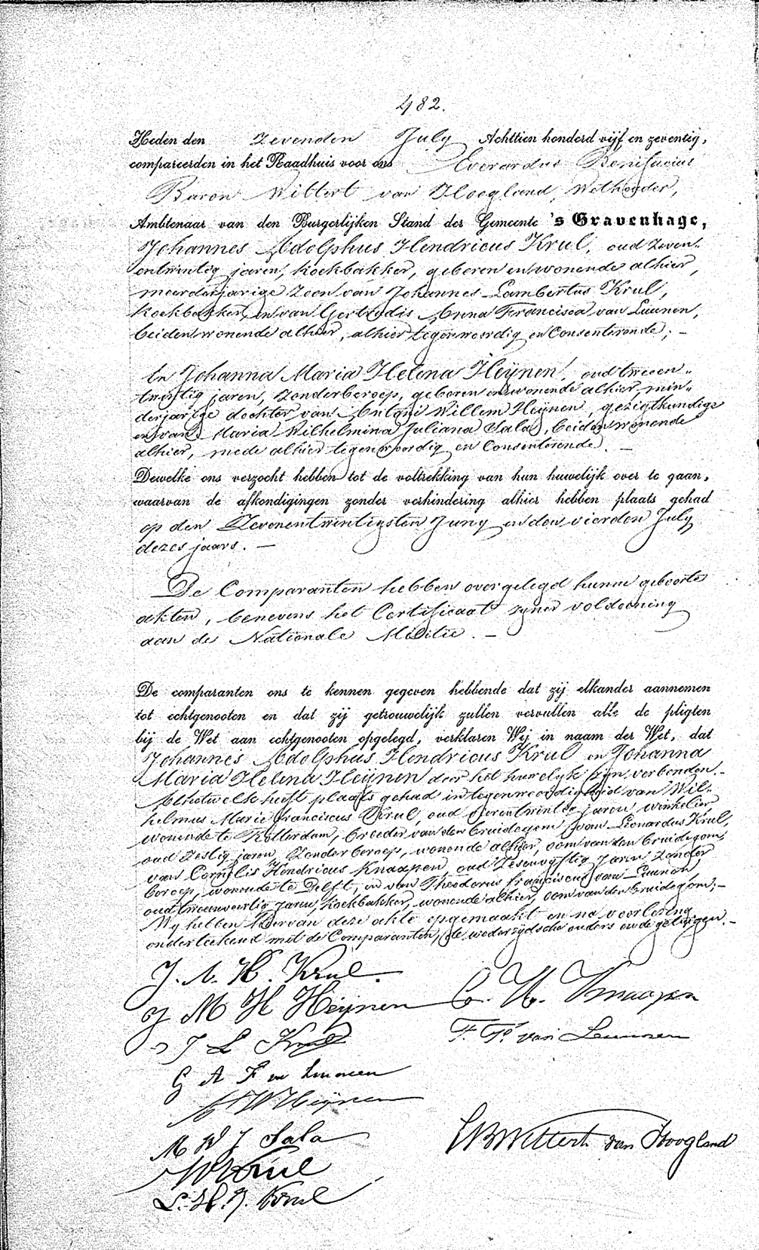 482.
Heden den zevenden July Achttien honderd vijf en zeventig,
compareerden in het Raadhuis voor ons Everardus Bonifacius
Baron Wittert van Hoogland, Wethouder,
Ambtenaar van den Burgerlijken Stand der Gemeente 's Gravenhage,
Johannes Adolphus Hendricus Krul, oud zeven
entwintig jaren, koekbakker, geboren en wonende alhier,
meerderjarige zoon van Johannes Lambertus Krul,
koekbakker, en van Gertrudis Anna Francisca van Luunen,
beiden wonende alhier, alhier tegenwoordig en Consenterende; –
En Johanna Maria Helena Heijnen, oud tweeen
twintig jaren, zonder beroep, geboren en wonende alhier, min
derjarige dochter van Willem Heijnen, gezigtkundige
en van Maria Wilhelmina Juliana Sala, beiden wonende
alhier, mede alhier tegenwoordig en Consenterende. –
Dewelke ons verzocht hebben tot de voltrekking van hun huwelijk over te gaan,
waarvan de afkondigingen zonder verhindering alhier hebben plaats gehad
op den Zevenentwintigsten Juny en den vierden July
dezes jaars. –
De Comparanten hebben overgelegd hunne geboorte
akten, benevens het Certificaat zyner voldoening
aan de Nationale Militie. –
De comparanten ons te kennen gegeven hebbende dat zij elkander aannemen
tot echtgenooten en dat zij getrouwelijk zullen vervullen alle de pligten
bij de Wet aan echtgenooten opgelegd, verklaren Wij in naam der Wet, dat
Johannes Adolphus Hendricus Krul en Johanna
Maria Helena Heijnen door het huwelijk zyn verbonden. –
Al hetwelk heeft plaats gehad in tegenwoordigheid van Wil
helmus Marie Franciscus Krul, oud vierentwintig jaren, winkelier
wonende te Rotterdam, broeder van den bruidegom, van Leonardus Krul,
oud zestig jaren, zonder beroep, wonende alhier, oom van den bruidegom,
van Cornelis Hendricus Knaapen, oud zesenvyftig jaren, zonder
beroep, wonende te Delft, en van Theodorus Franciscus van Luunen,
oud tweeenveertig jaren, koekbakker, wonende alhier, oom van den bruidegom; –
Wy hebben hiervan deze akte opgemaakt en na voorlezing
onderteekend met de Comparanten, de wederzydsche ouders en de getuigen. –
J. A. H. Krul.
J M H Heijnen C. H. Knaapen
J L Krul F. van Luunen
G A F v Luunen
A W Heijnen
M W J Sala EBWittert van Hoogland
Krul
L. H. J. Krul